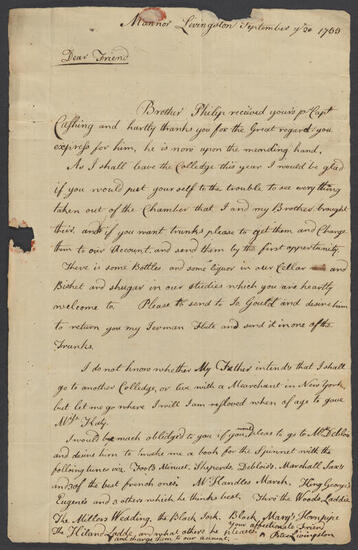 Mannor Livingston September ye 30 1755
Dear Friend
Brother Philip received yours pr Capt
Cushing and hartly thanks you for the Great regard you
express for him, he is now upon the mending hand.
As I shall leave the Colledge this year I would be glad
if you would put your self to the trouble to see every thing
taken out of the Chamber that I and my Brother brought
their. and if you want trunks please to get them and Charge
them to our Account, and send them by the first oppertunity.
There is some Bottles and some liquor in our Cellar and
Bisket and shugar in our studies which you are heartly
welcome to. Please to send to Jo Gould and desire him
to return you my German flute and send it in one of the
Trunks.
I do not know whether My Father intends that I shall
go to another Colledge, or live with a Marchant in New York,
but let me go where I will I am resloved when of age to have
Mrs
I would be much oblidged to you if you would pleas to go to Mr Deblois
and desire him to make me a book for the Spinnet with the
folling tunes viz. Fool's Minuet, Sheperds, Deblois's, Marshall Sax's
and of the best french ones. Mr Handles March, King George's
Eugene's and others which he thinks best. Thro the Woods Laddie
The Millers Wedding, the Black Jock, Black Mary's Hornpipe
The Hiland Laddie, and what others he pleases
and charge them to our account
Your affectionate Friend
Peter Livingston